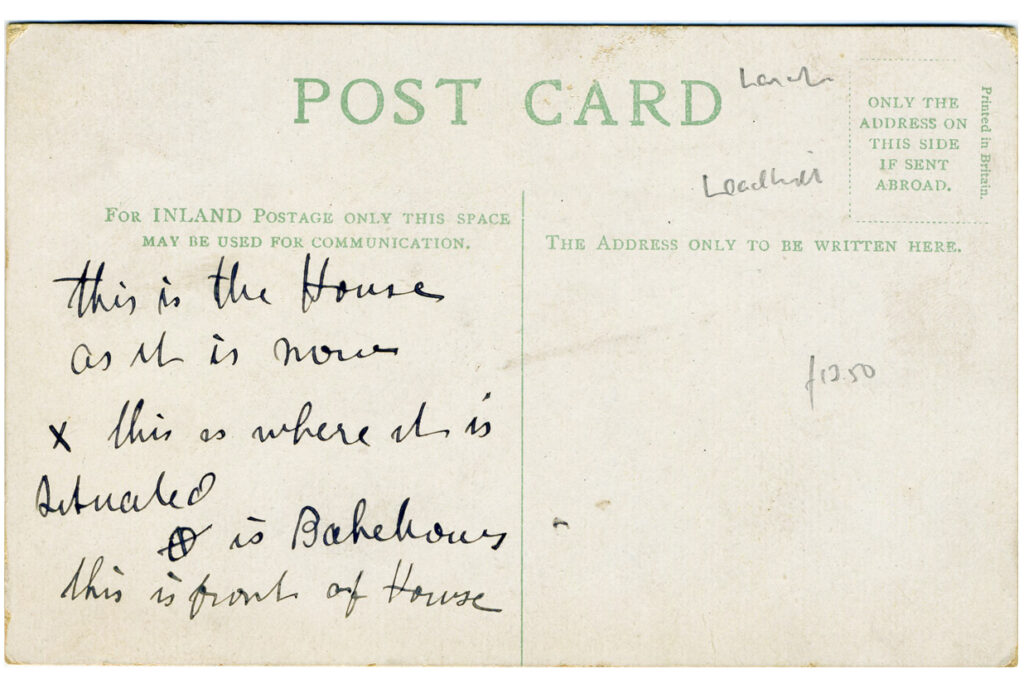 POST CARD
ONLY THE
ADDRESS ON
THIS SIDE
IF SENT
ABROAD.
Printed in Britain.
FOR INLAND POSTAGE ONLY THIS SPACE
MAY BE USED FOR COMMUNICATION.
THE ADDRESS ONLY TO BE WRITTEN HERE.
this is the House
as it is now
x this is where it is
situated
is Bakehous
this is front of House
£12.50